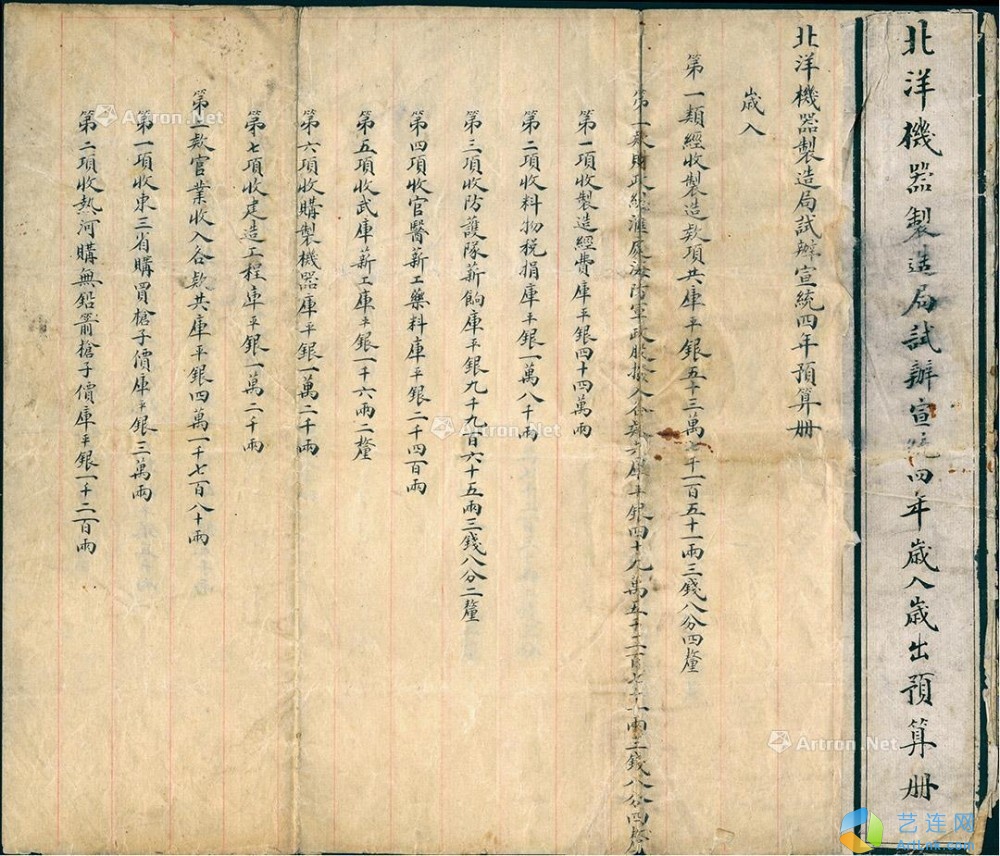 北洋機器製造局試辦宣統四年歲入歲出預算册
北洋機器製造局試辦宣統四年預算册
歲入
第一類經收製造款項共庫平銀五十三萬七千一百五十一兩三錢八分四釐
第一款財政總滙處海防軍政股撥入各款共庫平銀四十九萬五千三百七十一兩三錢八分四釐
第一項收製造經費庫平銀四十四萬兩
第二項收料物稅捐庫平銀一萬八千兩
第三項收防護隊薪餉庫平銀九千九百六十五兩三錢八分二釐
第四項收官醫薪工藥料庫平銀二千四百兩
第五項收武庫薪工庫平銀一千六兩二釐
第六項收購製機器庫平銀一萬二千兩
第七項收建造工程庫平銀一萬二千兩
第二款官業收入各款共庫平銀四萬一千七百八十兩
第一項收東三省購買槍子價庫平銀三萬兩
第二項收熱河購無鉛箭槍子價庫平銀一千二百兩
Artron.Net
Artron.Net
Artron.Net
艺连网